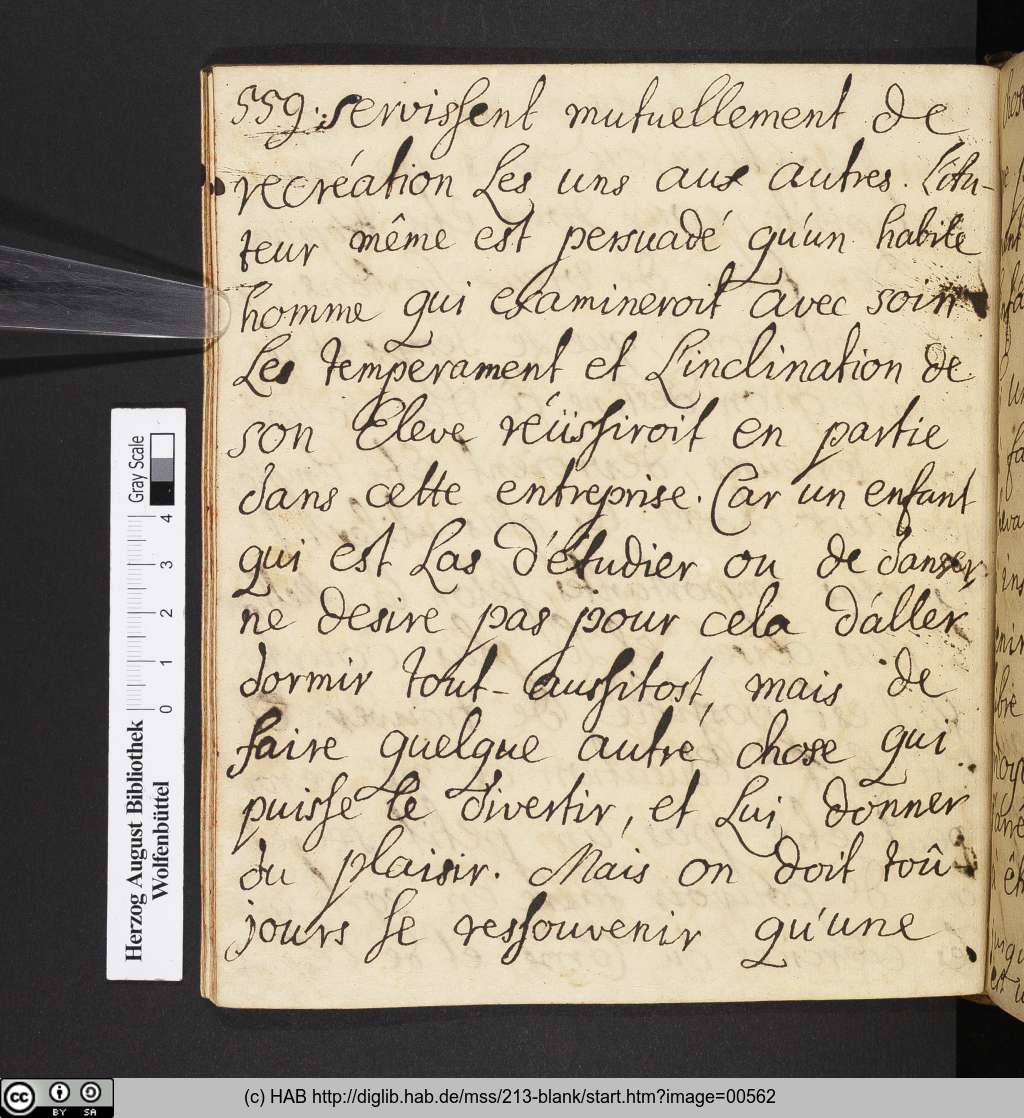 559. servissent mutuellement de
recréation Les uns aux autres. L'Au-
teur même est persuadé qu'un habile
homme qui examineroit avec soin
Les temperament et L'inclination de
son Eleve réüissiroit en partie
dans cette entreprise. Car un enfant
qui est Las d'étudier ou de danser,
ne desire pas pour cela d'aller
dormir tout-aussitost, mais de
faire quelque autre chose qui
puisse le divertir, et Lui donner
du plaisir. Mais on doit toû-
jours se ressouvenir qu'une
Gray Scale
0 1 2 3 4
Herzog August Bibliothek
Wolfenbüttel
cc BY SA
(c) HAB http://diglib.hab.de/mss/213-blank/start.htm?image=00562